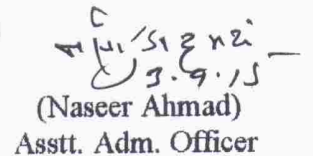 3.9.15
(Naseer Ahmad)
Asstt. Adm. Officer